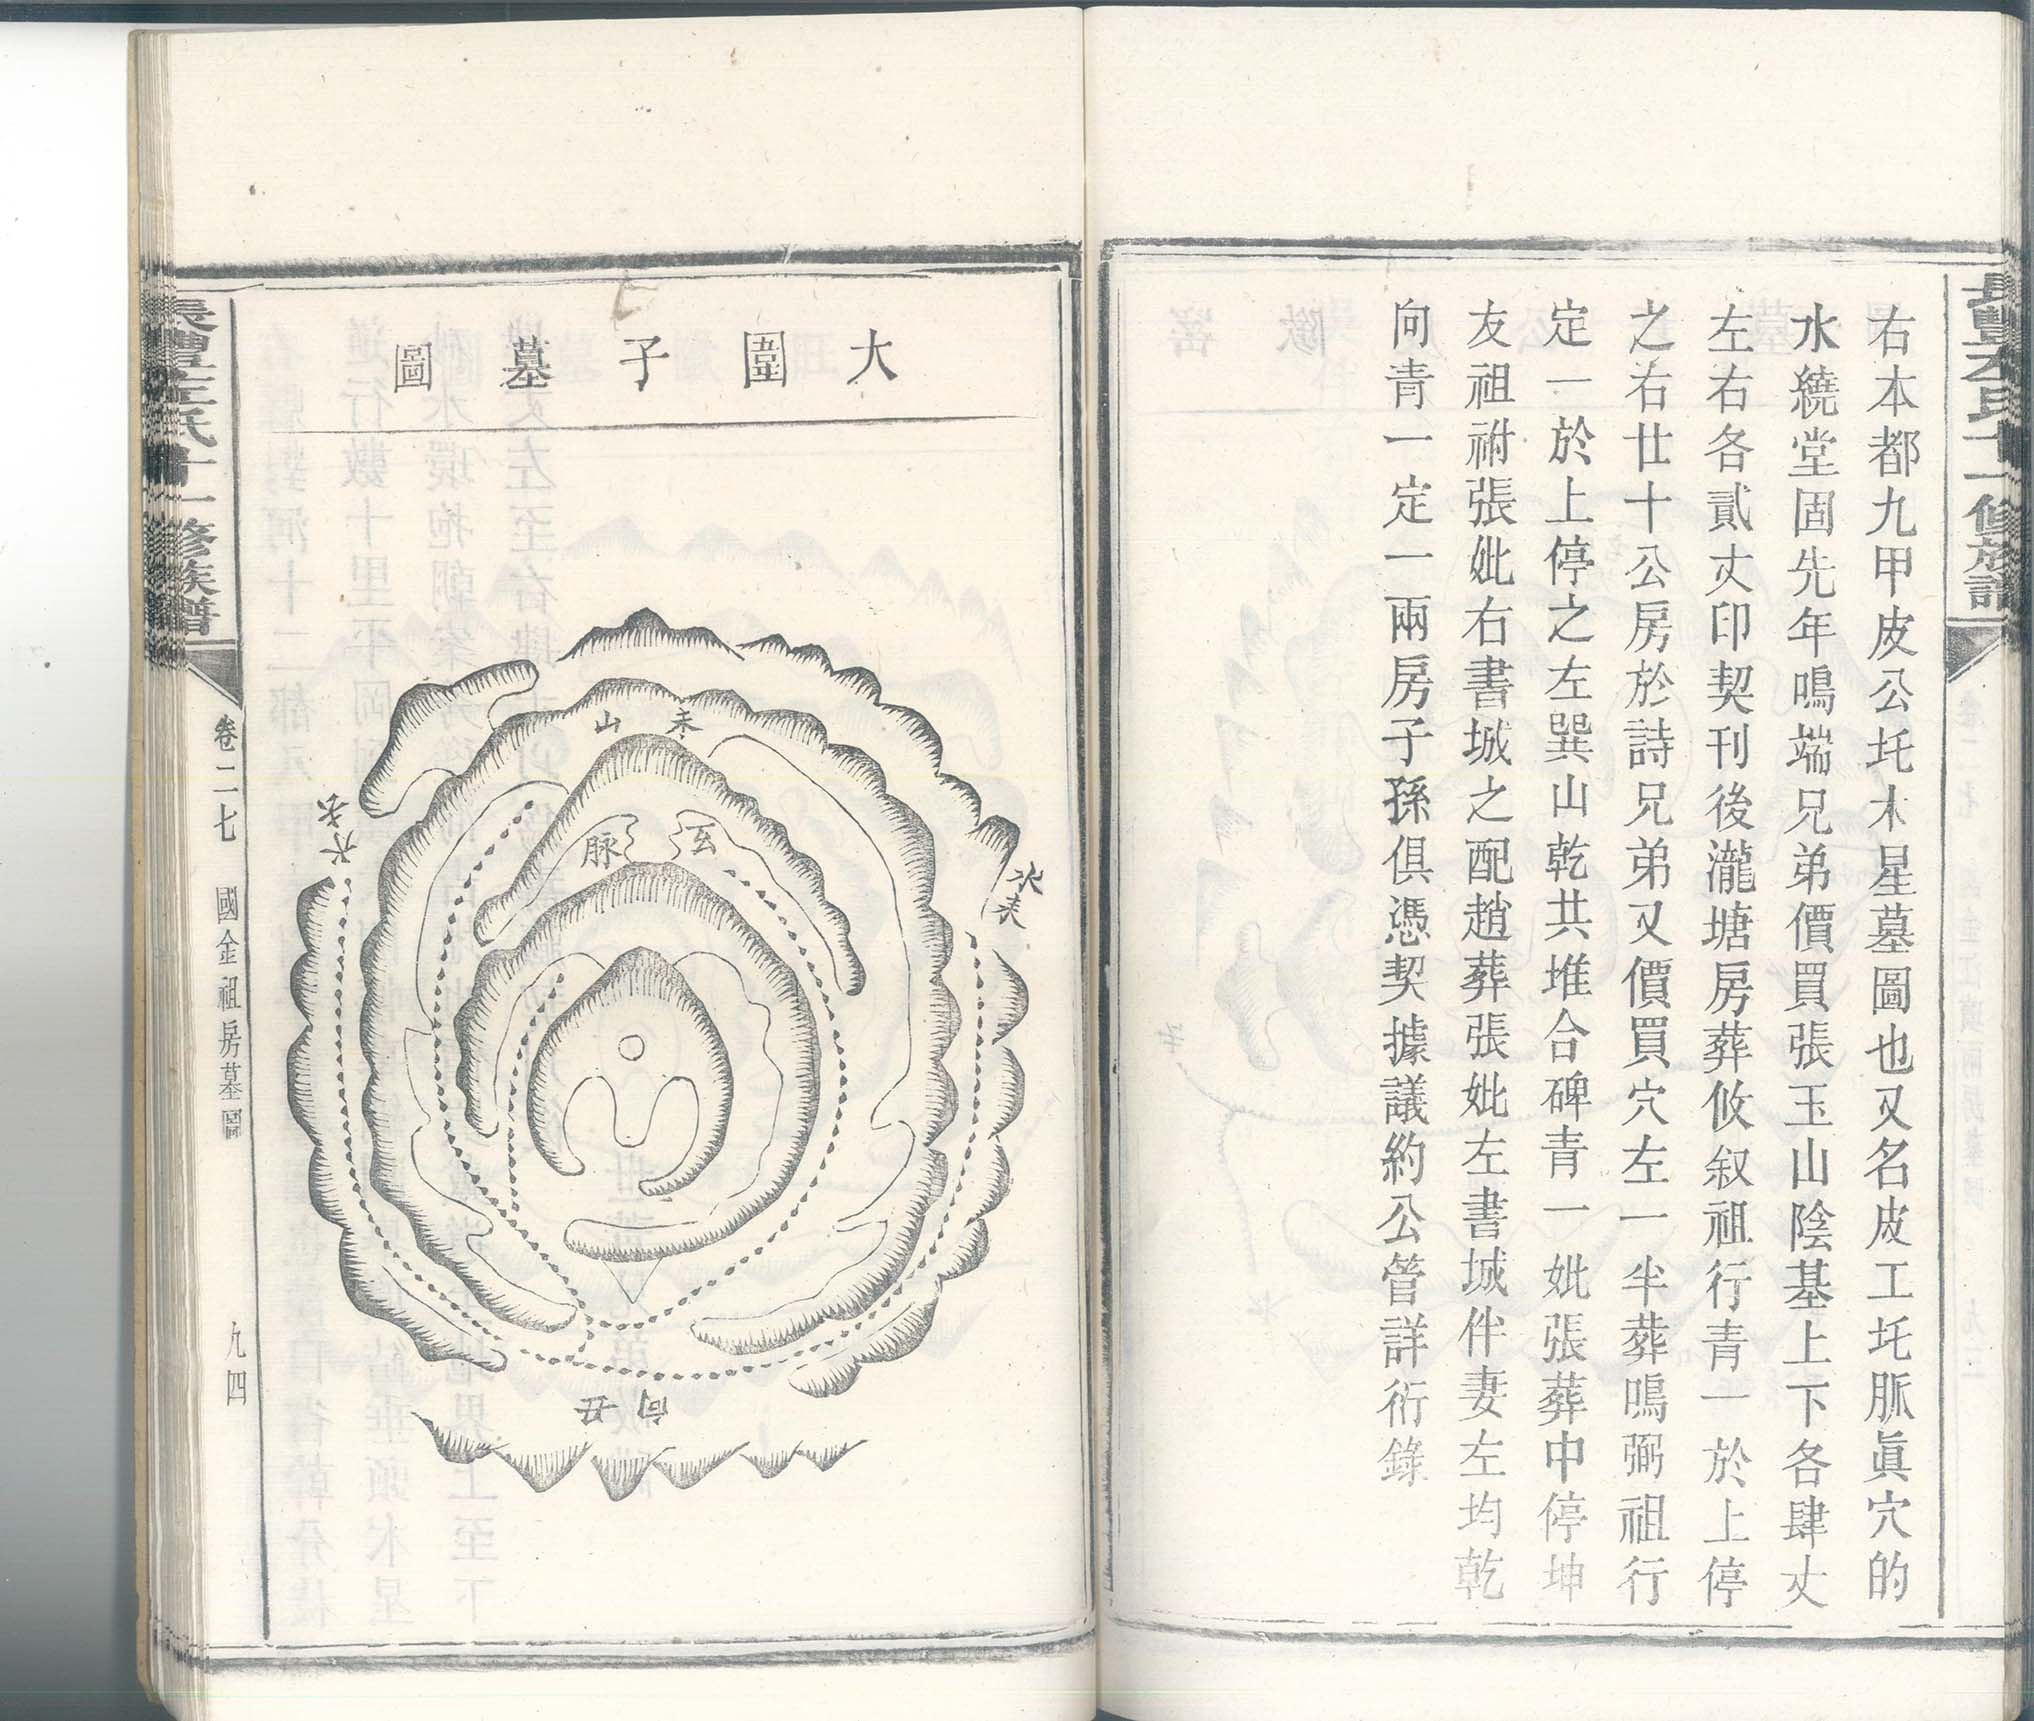 右本都九甲皮公圫木星墓圖也又名皮工圫脈眞穴的
水繞堂固先年鳴端兄弟價買張玉山陰基上下各肆丈
左右各貳丈印契刊後瀧塘房葬攸叙祖行青一於上停
之右廿十公房於詩兄弟又價買穴左一半葬鳴弼祖行
定一於上停之左巽山乾共堆合碑青一妣張葬中停坤
友祖祔張妣右書城之配趙葬張妣左書城伴妻左均乾
向青一定一兩房子孫俱憑契據議約公管詳衍錄
大圍子墓圖
未山
玄脈
水來
水去
丑向
氏十一修族譜
卷二七
國金祖房墓圖
九四